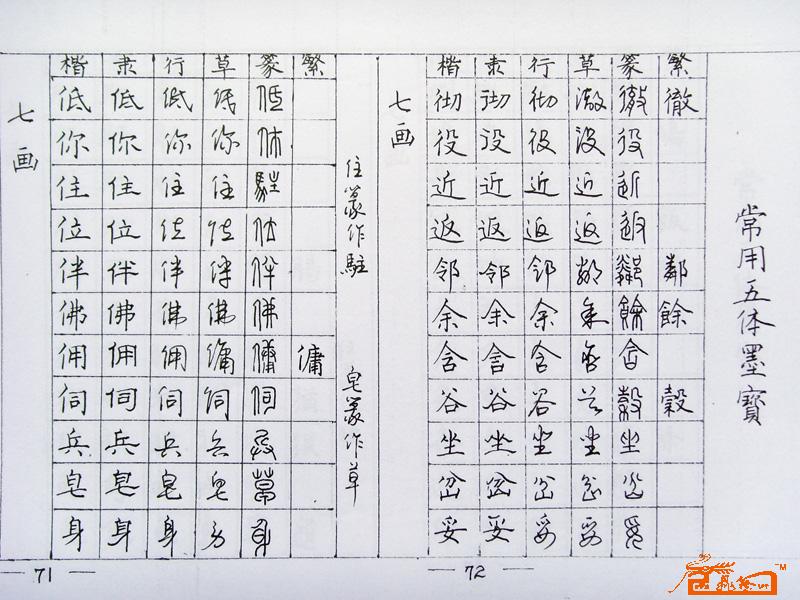 楷 隶 行 草 篆 繁
低 低 低 低 低
你 你 你 你 你
住 住 住 住 駐
位 位 位 位 位
伴 伴 伴 伴 伴
佛 佛 佛 佛 佛
佣 佣 佣 傭 傭 傭
伺 伺 伺 伺 伺
兵 兵 兵 兵 兵
皂 皂 皂 皂 草
身 身 身 身 身
七画
住篆作駐
皂篆作草
71
楷 隶 行 草 篆 繁
彻 彻 彻 澈 徹 徹
役 役 役 役 役
近 近 近 近 近
返 返 返 返 返
邻 邻 邻 鄰 鄰 鄰
余 余 余 余 餘 餘
含 含 含 含 含
谷 谷 谷 谷 穀 穀
坐 坐 坐 坐 坐
岔 岔 岔 岔 岔
妥 妥 妥 妥 妥
七画
72
常用五体墨寳